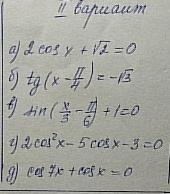 II вариант
а) 2cos x + √2 = 0
б) tg(x - π/4) = -√3
в) sin(x/3 - π/6) + 1 = 0
г) 2cos²x - 5cos x - 3 = 0
д) cos7x + cos x = 0